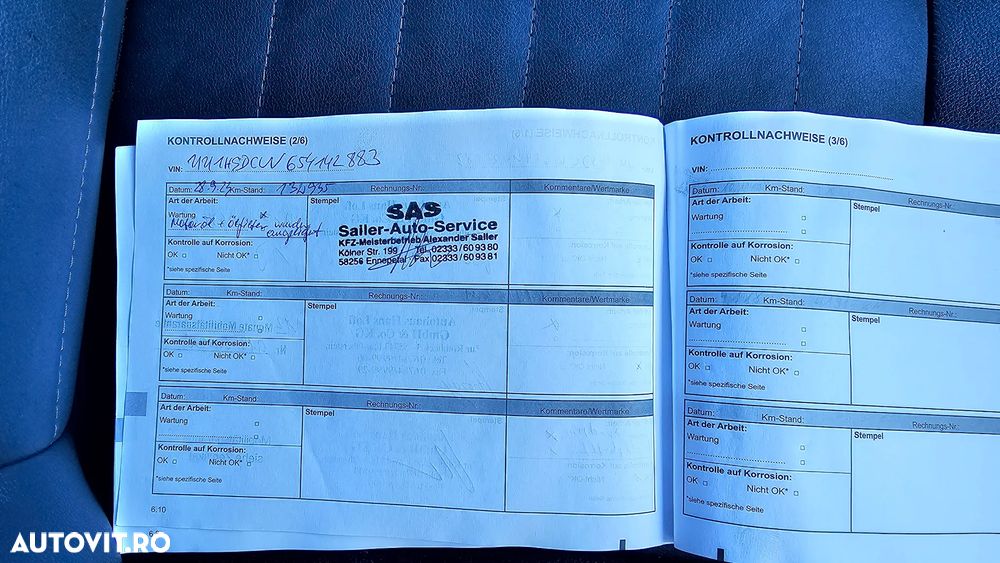 KONTROLLNACHWEISE (2/6)
VIN: UU1HSDCUN654142883
Datum: 28.9.23 Km-Stand: 134955 Rechnungs-Nr.: Kommentare/Wertmarke
Art der Arbeit: Stempel
Wartung x
Motoröl + Ölfilter wurden
Kontrolle auf Korrosion:
OK Nicht OK*
*siehe spezifische Seite
SAS
Sailer-Auto-Service
KFZ-Meisterbetrieb Alexander Sailer
Kölner Str. 199 Tel. 02333/60 93 80
58256 Ennepetal Fax 02333/60 93 81
Datum: Km-Stand: Rechnungs-Nr.: Kommentare/Wertmarke
Art der Arbeit: Stempel
Wartung
Kontrolle auf Korrosion:
OK Nicht OK*
*siehe spezifische Seite
Datum: Km-Stand: Rechnungs-Nr.: Kommentare/Wertmarke
Art der Arbeit: Stempel
Wartung
Kontrolle auf Korrosion:
OK Nicht OK*
*siehe spezifische Seite
6.10
KONTROLLNACHWEISE (3/6)
VIN:
Datum: Km-Stand: Rechnungs-Nr.:
Art der Arbeit: Stempel
Wartung
Kontrolle auf Korrosion:
OK Nicht OK*
*siehe spezifische Seite
Datum: Km-Stand: Rechnungs-Nr.:
Art der Arbeit: Stempel
Wartung
Kontrolle auf Korrosion:
OK Nicht OK*
*siehe spezifische Seite
Datum: Km-Stand: Rechnungs-Nr.:
Art der Arbeit: Stempel
Wartung
Kontrolle auf Korrosion:
OK Nicht OK*
*siehe spezifische Seite
AUTOVIT.RO